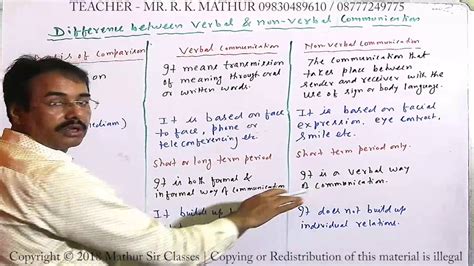 TEACHER - MR. R. K. MATHUR 09830489610 / 08777249775
Difference between Verbal & non-verbal Communication
is of Comparison
Verbal Communication
It means transmission
of meaning through oral
or written words.
It is based on face
to face, phone or
teleconferencing etc.
Short or long term period
It is both formal &
informal way of communication
It builds up
Non Verbal Communication
The Communication that
takes place between
sender and receiver with the
use of sign or body language.
It is based on facial
expression, eye contract,
smile etc.
Short term period only.
It is a verbal way
of communication.
It does not build up
individual relations.
Copyright © 2018 Mathur Sir Classes | Copying or Redistribution of this material is illegal